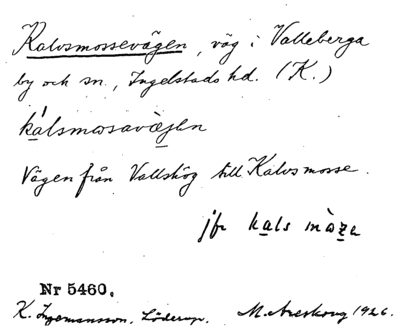 Kalvsmossevägen, väg i Valleberga
by och sn., Ingelstads hd. (K.)
kálsmosavὲjen
Vägen från Vallskog till Kalvsmosse.
jfr kals
Nr 5460.
K. Ingemansson, Löderup. M. Areskoug 1926.